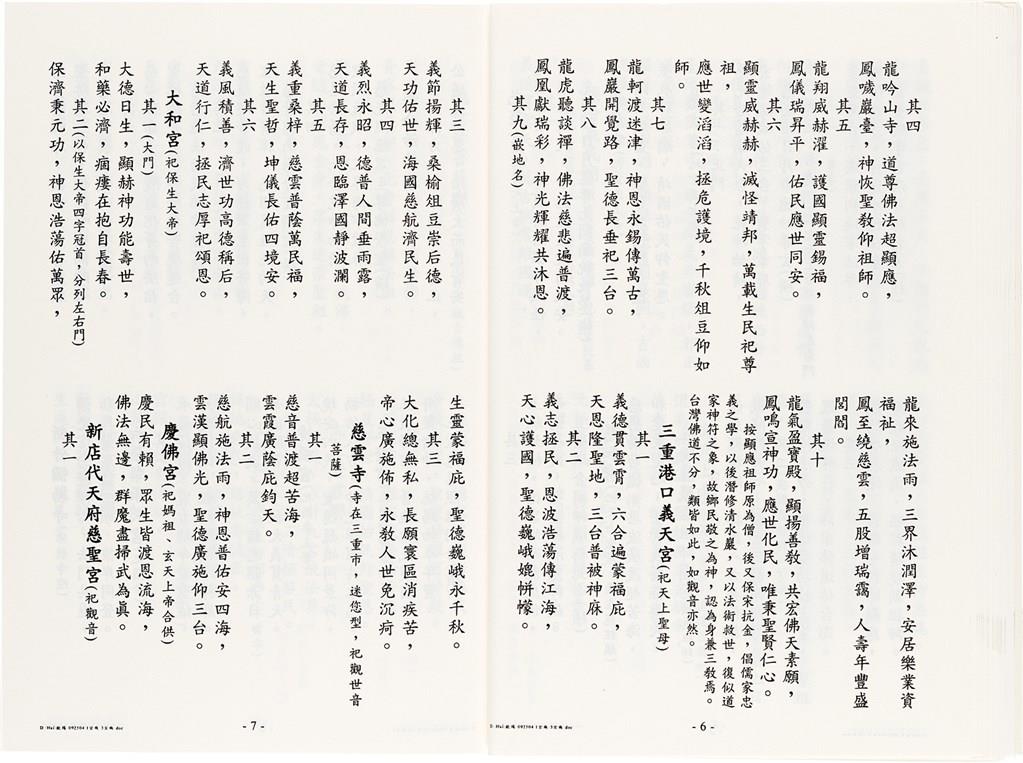 其四
龍吟山寺，道尊佛法超顯應，
鳳喊巖臺，神恢聖教仰祖師。
其五
龍翔威赫濯，護國顯靈錫福，
鳳儀瑞昇平，佑民應世同安。
其六
顯靈威赫赫，滅怪靖邦，萬載生民祀尊
祖，
應世變滔滔，拯危護境，千秋俎豆仰如
師。
其七
龍軻渡迷津，神恩永錫傳萬古，
鳳巖開覺路，聖德長垂祀三台。
其八
龍虎聽談禪，佛法慈悲遍普渡，
鳳凰獻瑞彩，神光輝耀共沐恩。
其九(嵌地名)
龍來施法雨，三界沐潤澤，安居樂業資
福祉，
鳳至繞慈雲，五股增瑞靄，人壽年豐盛
閭閻。
其十
龍氣盈寶殿，顯揚善教，共宏佛天素願，
鳳鳴宣神功，應世化民，唯秉聖賢仁心。
按顯應祖師原為僧，後又保宋抗金，倡儒家忠
義之學，以後潛修清水巖，又以法術救世，復似道
家神符之象，故鄉民敬之為神，認為身兼三教焉。
台灣佛道不分，類皆如此，如觀音亦然。
三重港口義天宮(祀天上聖母)
其一
義德貫雲霄，六合遍蒙福庇，
天恩隆聖地，三台普被神庥。
其二
義志拯民，恩波浩蕩傳江海，
天心護國，聖德巍峨媲帡幪。
- 6 -
其三
義節揚輝，桑榆俎豆崇后德，
天功佑世，海國慈航濟民生。
其四
義烈永昭，德普人間垂雨露，
天道長存，恩臨澤國靜波瀾。
其五
義重桑梓，慈雲普蔭萬民福，
天生聖哲，坤儀長佑四境安。
其六
義風積善，濟世功高德稱后，
天道行仁，拯民志厚祀頌恩。
大和宮(祀保生大帝)
其一(大門)
大德日生，顯赫神功能壽世，
和藥必濟，痌瘻在抱自長春。
其二(以保生大帝四字冠首，分列左右門)
保濟秉元功，神恩浩蕩佑萬眾，
生靈蒙福庇，聖德巍峨永千秋。
其三
大化總無私，長願寰區消疾苦，
帝心廣施佈，永教人世免沉疴。
慈雲寺(寺在三重市，迷您型，祀觀世音
菩薩)
其一
慈音普渡超苦海，
雲霞廣蔭庇鈞天。
其二
慈航施法雨，神恩普佑安四海，
雲漢顯佛光，聖德廣施仰三台。
慶佛宮(祀媽祖、玄天上帝合供)
慶民有賴，眾生皆渡恩流海，
佛法無邊，群魔盡掃武為真。
新店代天府慈聖宮(祀觀音)
其一
- 7 -